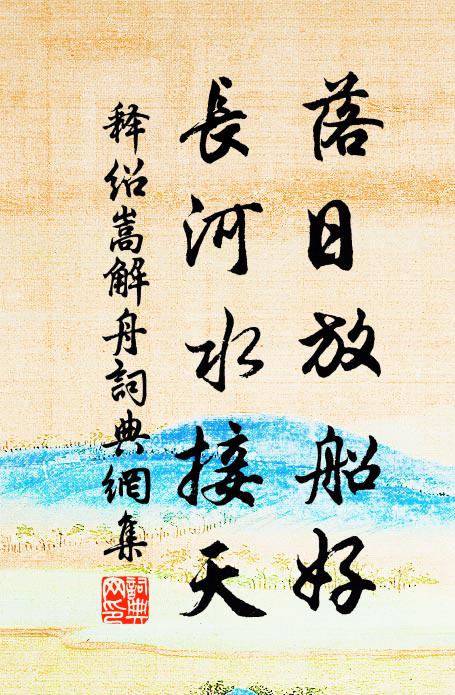 落日放船好
長河水接天
释绍嵩解舟詞典網集
詞典网印